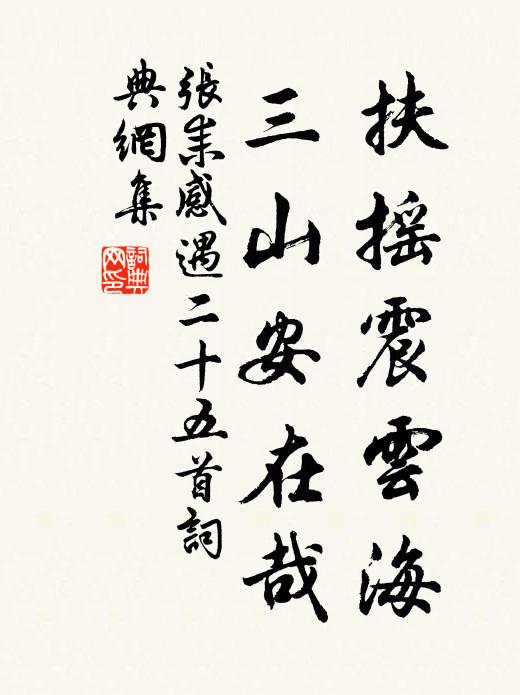 扶摇震雲海
三山安在哉
張耒感遇二十五首詞
典網集
詞典
网印